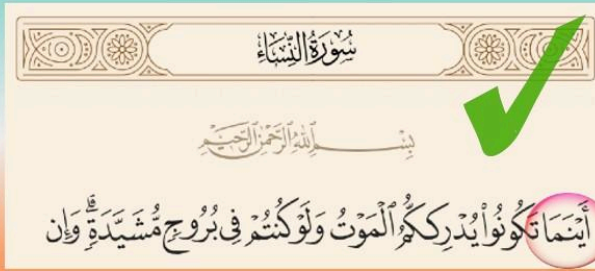 سُورَةُ النِّسَاءِ
بِسْمِ ٱللَّهِ ٱلرَّحْمَٰنِ ٱلرَّحِيمِ
أَيْنَمَا تَكُونُوا۟ يُدْرِككُّمُ ٱلْمَوْتُ وَلَوْ كُنتُمْ فِى بُرُوجٍ مُّشَيَّدَةٍ ۗ وَإِن